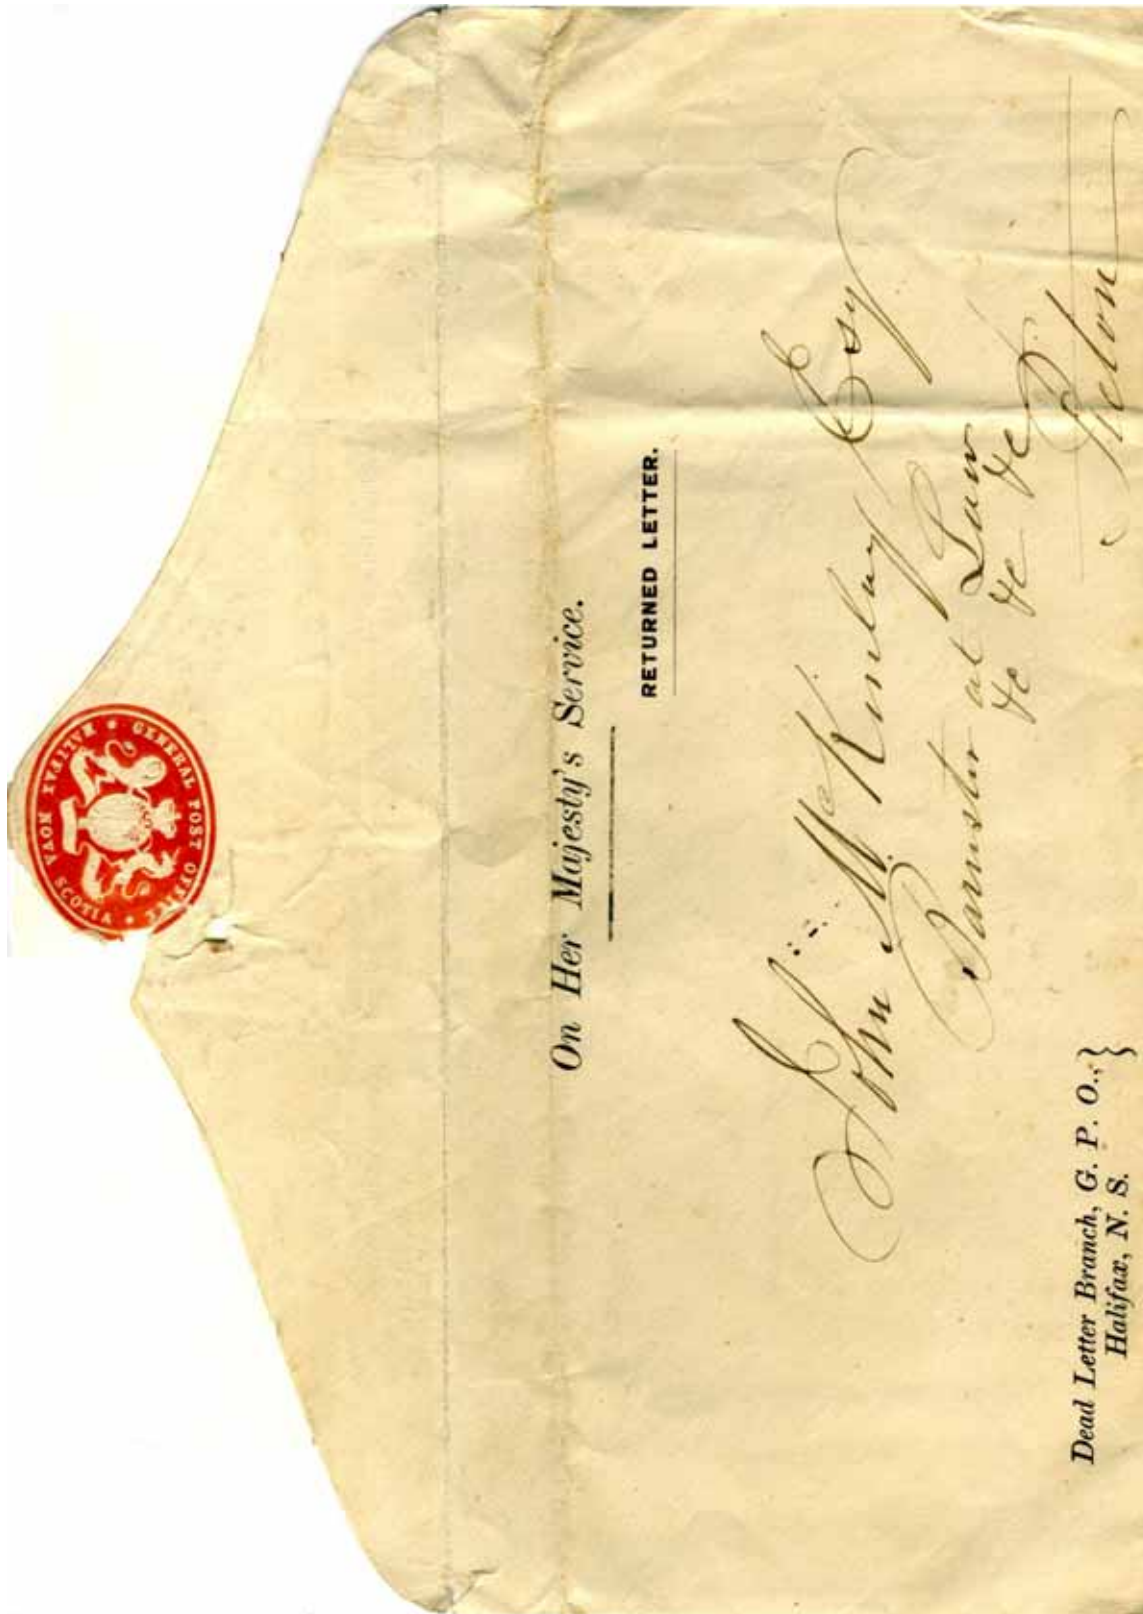 GENERAL POST OFFICE HALIFAX NOVA SCOTIA
On Her Majesty's Service.
RETURNED LETTER.
John McKinlay Esq
Barrister at Law
&c &c &c
Pictou
Dead Letter Branch, G. P. O.,
Halifax, N. S.